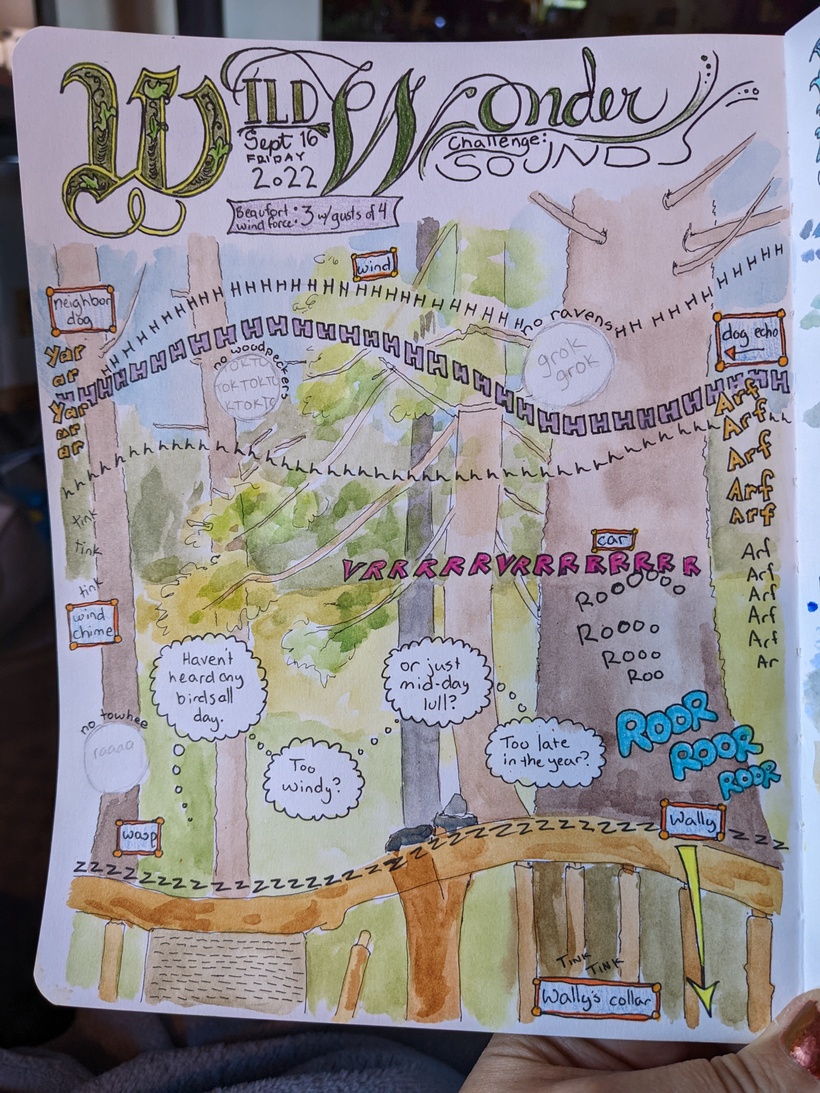 WILD Wonder
Sept 16
FRIDAY
2022
Challenge:
SOUNDS
Beaufort wind force: 3 w/gusts of 4
wind
HHHHHHHHHHHHHHHHHHHHHHHH
neighbor
dog
Yar
ar
Yar
ar
ar
no woodpeckers
TOKTO
TOKTOKTO
KTOKTO
no ravens
grok
grok
dog echo
HHHHHHHHHHHHHHHHHHHHHHHHHHHHHHHH
hhhhhhhhhhhhhhhhhhhhhhhhhhhhhhhh
Arf
Arf
Arf
Arf
Arf
Arf
Arf
Arf
Arf
Arf
Ar
tink
tink
tink
wind
chime
car
VRRRRRVRRRRRRRR
Rooooooo
Roooo
Rooo
Roo
Haven't
heard any
birds all
day.
Too
windy?
or just
mid-day
lull?
Too late
in the year?
no towhee
raaaa
ROOR
ROOR
ROOR
Wally
wasp
ZZZZZZZZZZZZZZZZZZZZZZZZZZZZZZZZZZZZZZZZ
TINK
TINK
Wally's collar